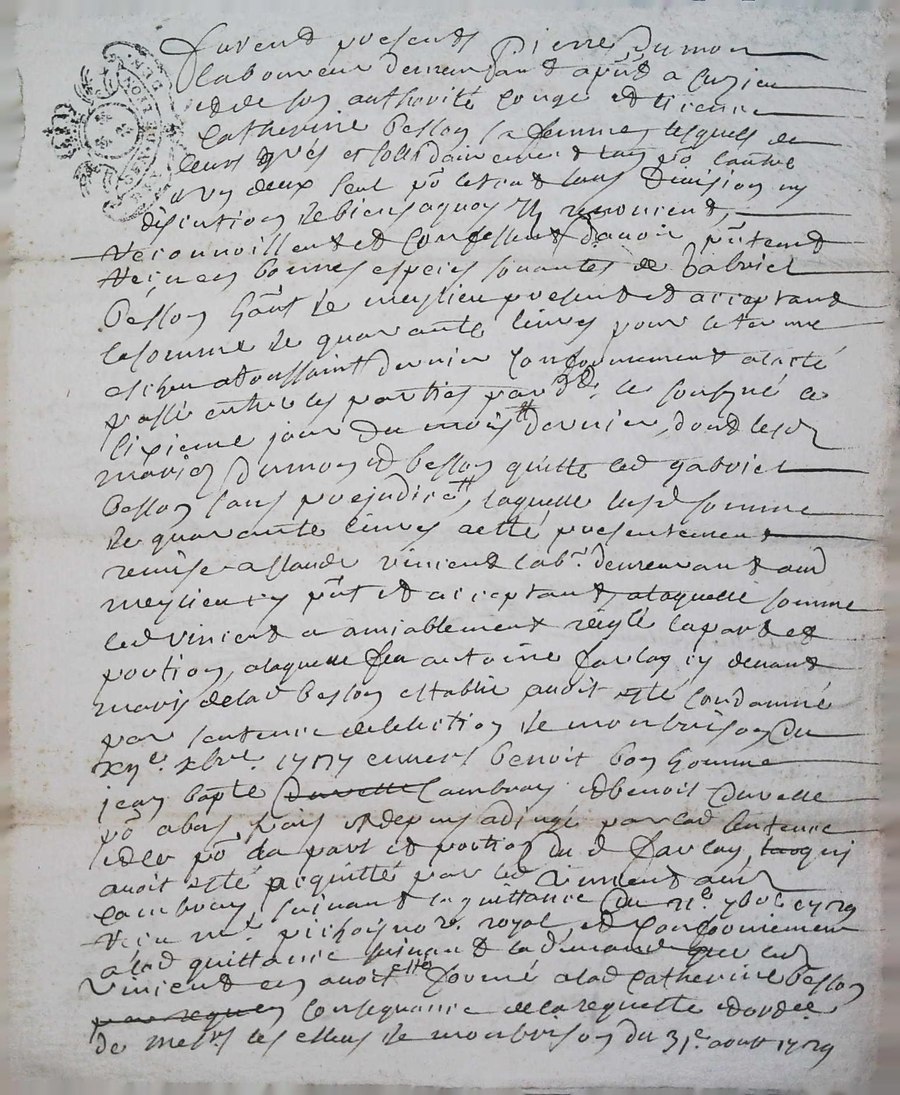 furent presents Pierre Dumon
laboureur demeurant a Cuzieu
et de son authorité conge et licence
Catherine Besson sa femme, lesquels de
leurs grés et sollidairement lun po lautre
un deux seul po le tout sans division ny
discution de biens aquoy Ils renoncent,
reconnoissent et confessent d'avoir
receu en bonnes especes sonantes de Gabriel
Besson de meylieu present et acceptant
la somme de quarante livres pour le terme
escheu a toussaint dernier conformement a lacte
passé entre les parties par le sousigné le
sixieme jour du mois dernier, dont lesd
mariez Dumon et Besson quitte led gabriel
Besson sans prejudice, laquelle susd somme
de quarante livres a esté presentement
remise a Claude vincent lab. demeurant aud
meylieu icy pnt et acceptant, a laquelle somme
led vincent a amiablement reiglé la part et
portion, a laquelle feu antoine Farlay cy devant
mary de lad Besson estable avoit esté condamné
par sentence de lelection de montbrison du
xbre. 1717 envers benoit bon homme
jean bapte Duvette Cambray et benoit Duvette
po abus frais et depens adjugé par lad sentence
et de po la part et portion du d Farlay, qui
avoit esté acquitté par led vincent aud
Cambray, suivant la quittance du 21e. 7bre 1719
receu me. pichoy no re. royal, et conformement
a lad quittance suivant la demande que led
vincent en avoit formé a lad Catherine Besson
par consequance de la requette
de mess les esleus de montbrison du 31e. aoust 1719
GEN. LYON